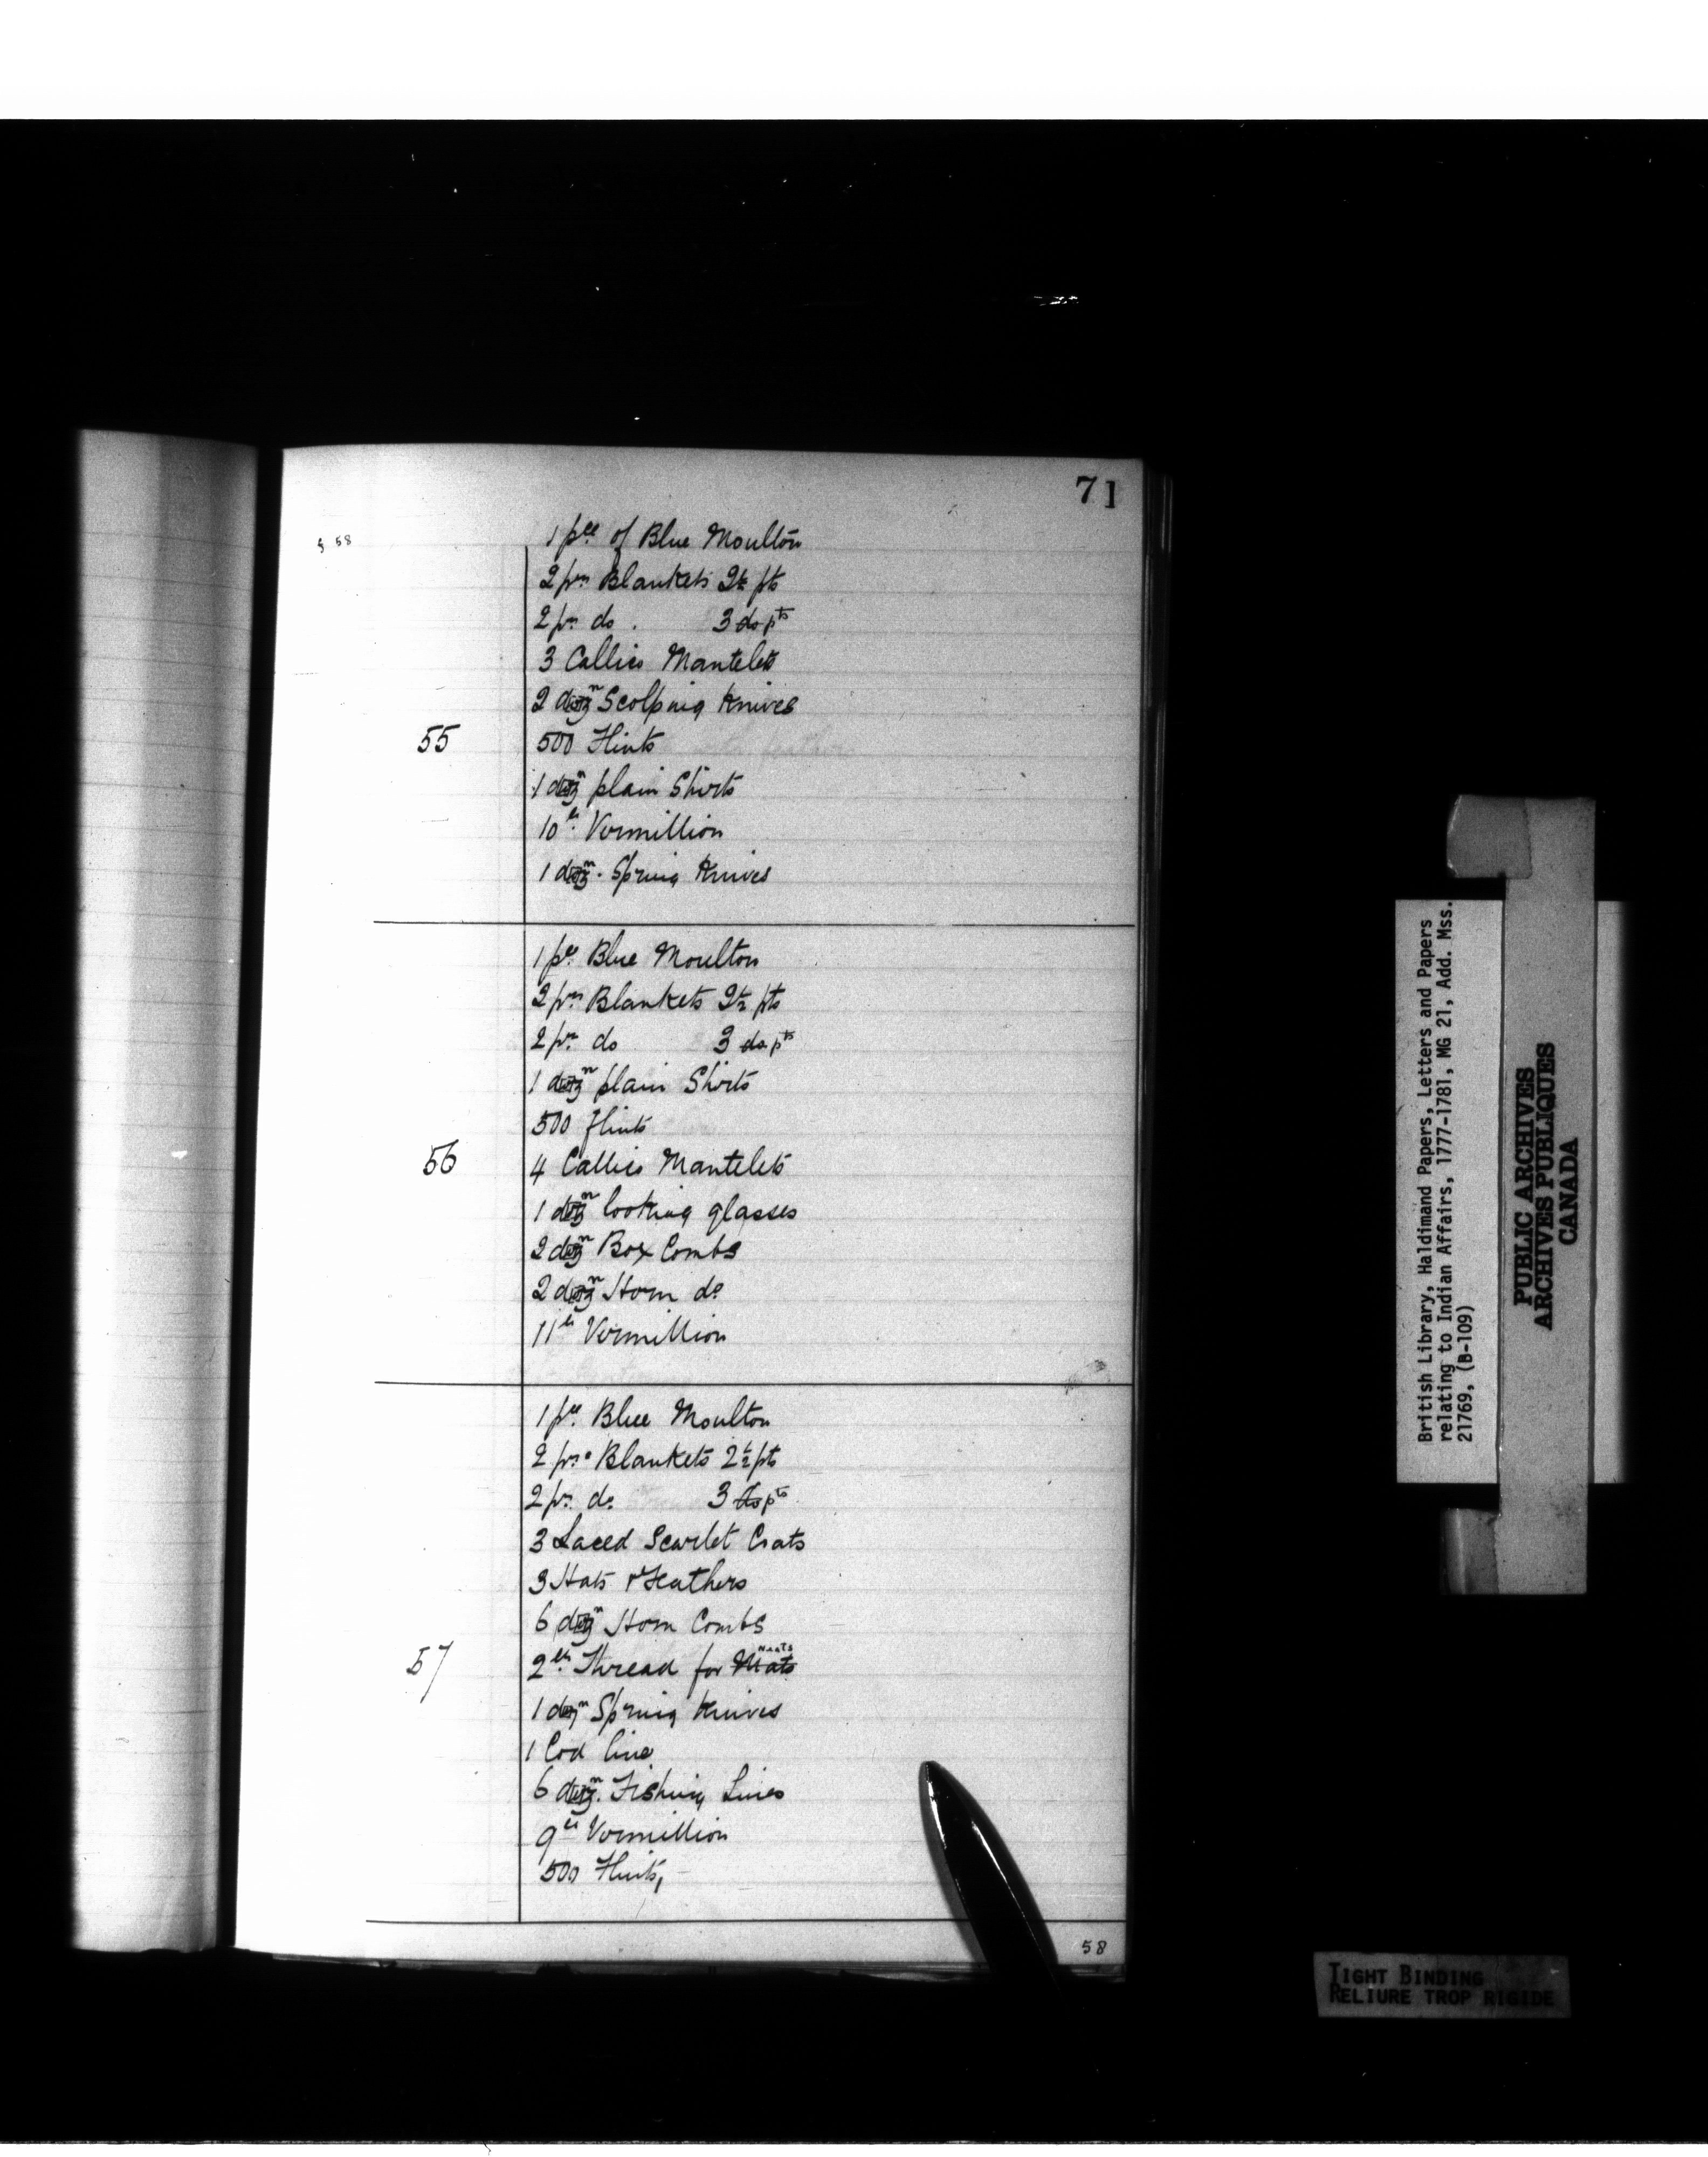 71
58
1 pce of Blue Moulton
2 prs Blankets 2½ pts
2 pr do . 3 do pts
3 Callico Mantelets
2 dozn Scolping Knives
55
500 Flints
1 dozn plain Shirts
10 lb. Vermillion
1 dozn. Spring Knives
1 pce. Blue Moulton
2 prs Blankets 2½ pts
2 pr. do 3 do pts
1 dozn plain Shirts
500 flints
56
4 Callico Mantelets
1 dozn looking glasses
2 dozn Box Combs
2 dozn Horn do
11 lb Vermillion
1 pce. Blue Moulton
2 prs. Blankets 2½ pts
2 pr. do. 3 do pts
3 Laced Scarlet Coats
3 Hats & Feathers
6 dozn Horn Combs
57
2 lb. Thread for Mats Neats
1 dozn Spring Knives
1 Cod line
6 dozn. Fishing Lines
9 lb Vermillion
500 Flints,
58
British Library, Haldimand Papers, Letters and Papers
relating to Indian Affairs, 1777-1781, MG 21, Add. Mss.
21769, (B-109)
PUBLIC ARCHIVES
ARCHIVES PUBLIQUES
CANADA
TIGHT BINDING
RELIURE TROP RIGIDE